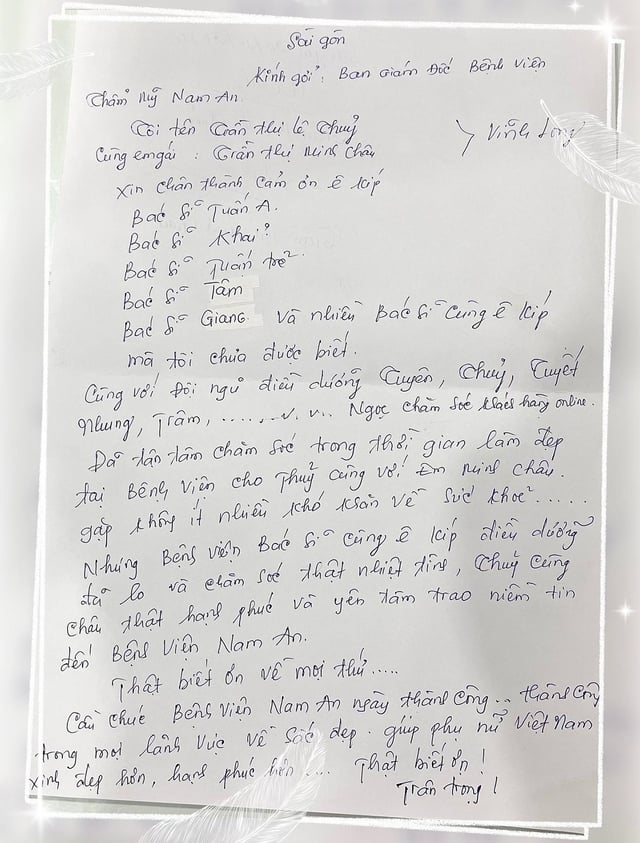 Sài gòn
Kính gởi : Ban Giám Đốc Bệnh Viện
Thẩm Mỹ Nam An
Tôi tên Trần thị lệ Thuỷ
> Vĩnh Long
Cùng em gái : Trần thị Minh Châu
Xin chân thành cảm ơn ê kíp
Bác sĩ Tuấn A.
Bác sĩ Khải
Bác sĩ Tuấn trẻ
Bác sĩ Tâm
Bác sĩ Giang và nhiều Bác sĩ cùng ê kíp
mà tôi chưa được biết.
Cùng với đội ngủ điều dưỡng Tuyên, Thuỷ, Tuyết
Nhung, Trâm, ....., v. v.. Ngọc chăm sóc khách hàng online.
Đã tận tâm chăm sóc trong thời gian làm đẹp
tại Bệnh Viện cho Thuỷ cùng với Em Minh Châu.
gặp không ít nhiều khó khăn về sức khoẻ......
Nhưng Bệnh viện Bác sĩ cùng ê kíp điều dưỡng
đã lo và chăm sóc thật nhiệt tình, Thuỷ cùng
Châu thật hạnh phúc và yên tâm trao niềm tin
đến Bệnh Viện Nam An.
Thật biết ơn về mọi thứ.....
Cầu chúc Bệnh viện Nam An ngày thành công... thành công
trong mọi lãnh vực về sắc đẹp. giúp phụ nử Việt Nam
xinh đẹp hơn, hạnh phúc hơn.... Thật biết ơn !
Trân trọng !